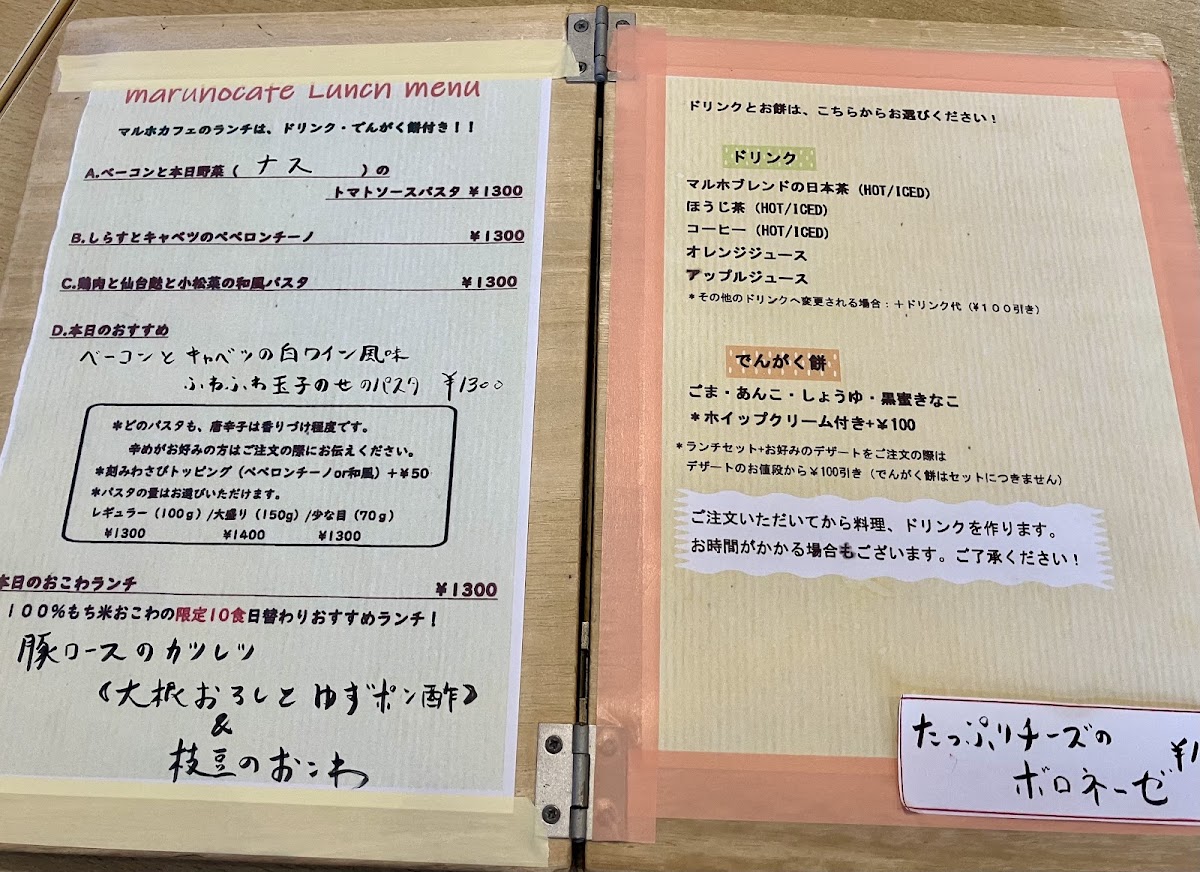 marunocafe Lunch menu
マルホカフェのランチは、ドリンク・でんがく餅付き！！
A.ベーコンと本日野菜（ ナス ）の
トマトソースパスタ ¥1300
B.しらすとキャベツのペペロンチーノ ¥1300
C.鶏肉と仙台麩と小松菜の和風パスタ ¥1300
D.本日のおすすめ
ベーコンとキャベツの白ワイン風味
ふわふわ玉子のせのパスタ ¥1300
＊どのパスタも、唐辛子は香りづけ程度です。
辛めがお好みの方はご注文の際にお伝えください。
＊刻みわさびトッピング（ペペロンチーノor和風）＋¥50
＊パスタの量はお選びいただけます。
レギュラー（100ｇ）/大盛り（150g）/少な目（70ｇ）
¥1300 ¥1400 ¥1300
本日のおこわランチ ¥1300
１００％もち米おこわの限定10食日替わりおすすめランチ！
豚ロースのカツレツ
《大根おろしとゆずポン酢》
&
枝豆のおこわ
ドリンクとお餅は、こちらからお選びください！
ドリンク
マルホブレンドの日本茶（HOT/ICED）
ほうじ茶（HOT/ICED）
コーヒー（HOT/ICED）
オレンジジュース
アップルジュース
＊その他のドリンクへ変更される場合：＋ドリンク代（¥１００引き）
でんがく餅
ごま・あんこ・しょうゆ・黒蜜きなこ
＊ホイップクリーム付き+¥100
＊ランチセット+お好みのデザートをご注文の際は
デザートのお値段から¥100引き（でんがく餅はセットにつきません）
ご注文いただいてから料理、ドリンクを作ります。
お時間がかかる場合もございます。ご了承ください！
たっぷりチーズの
ボロネーゼ ¥1